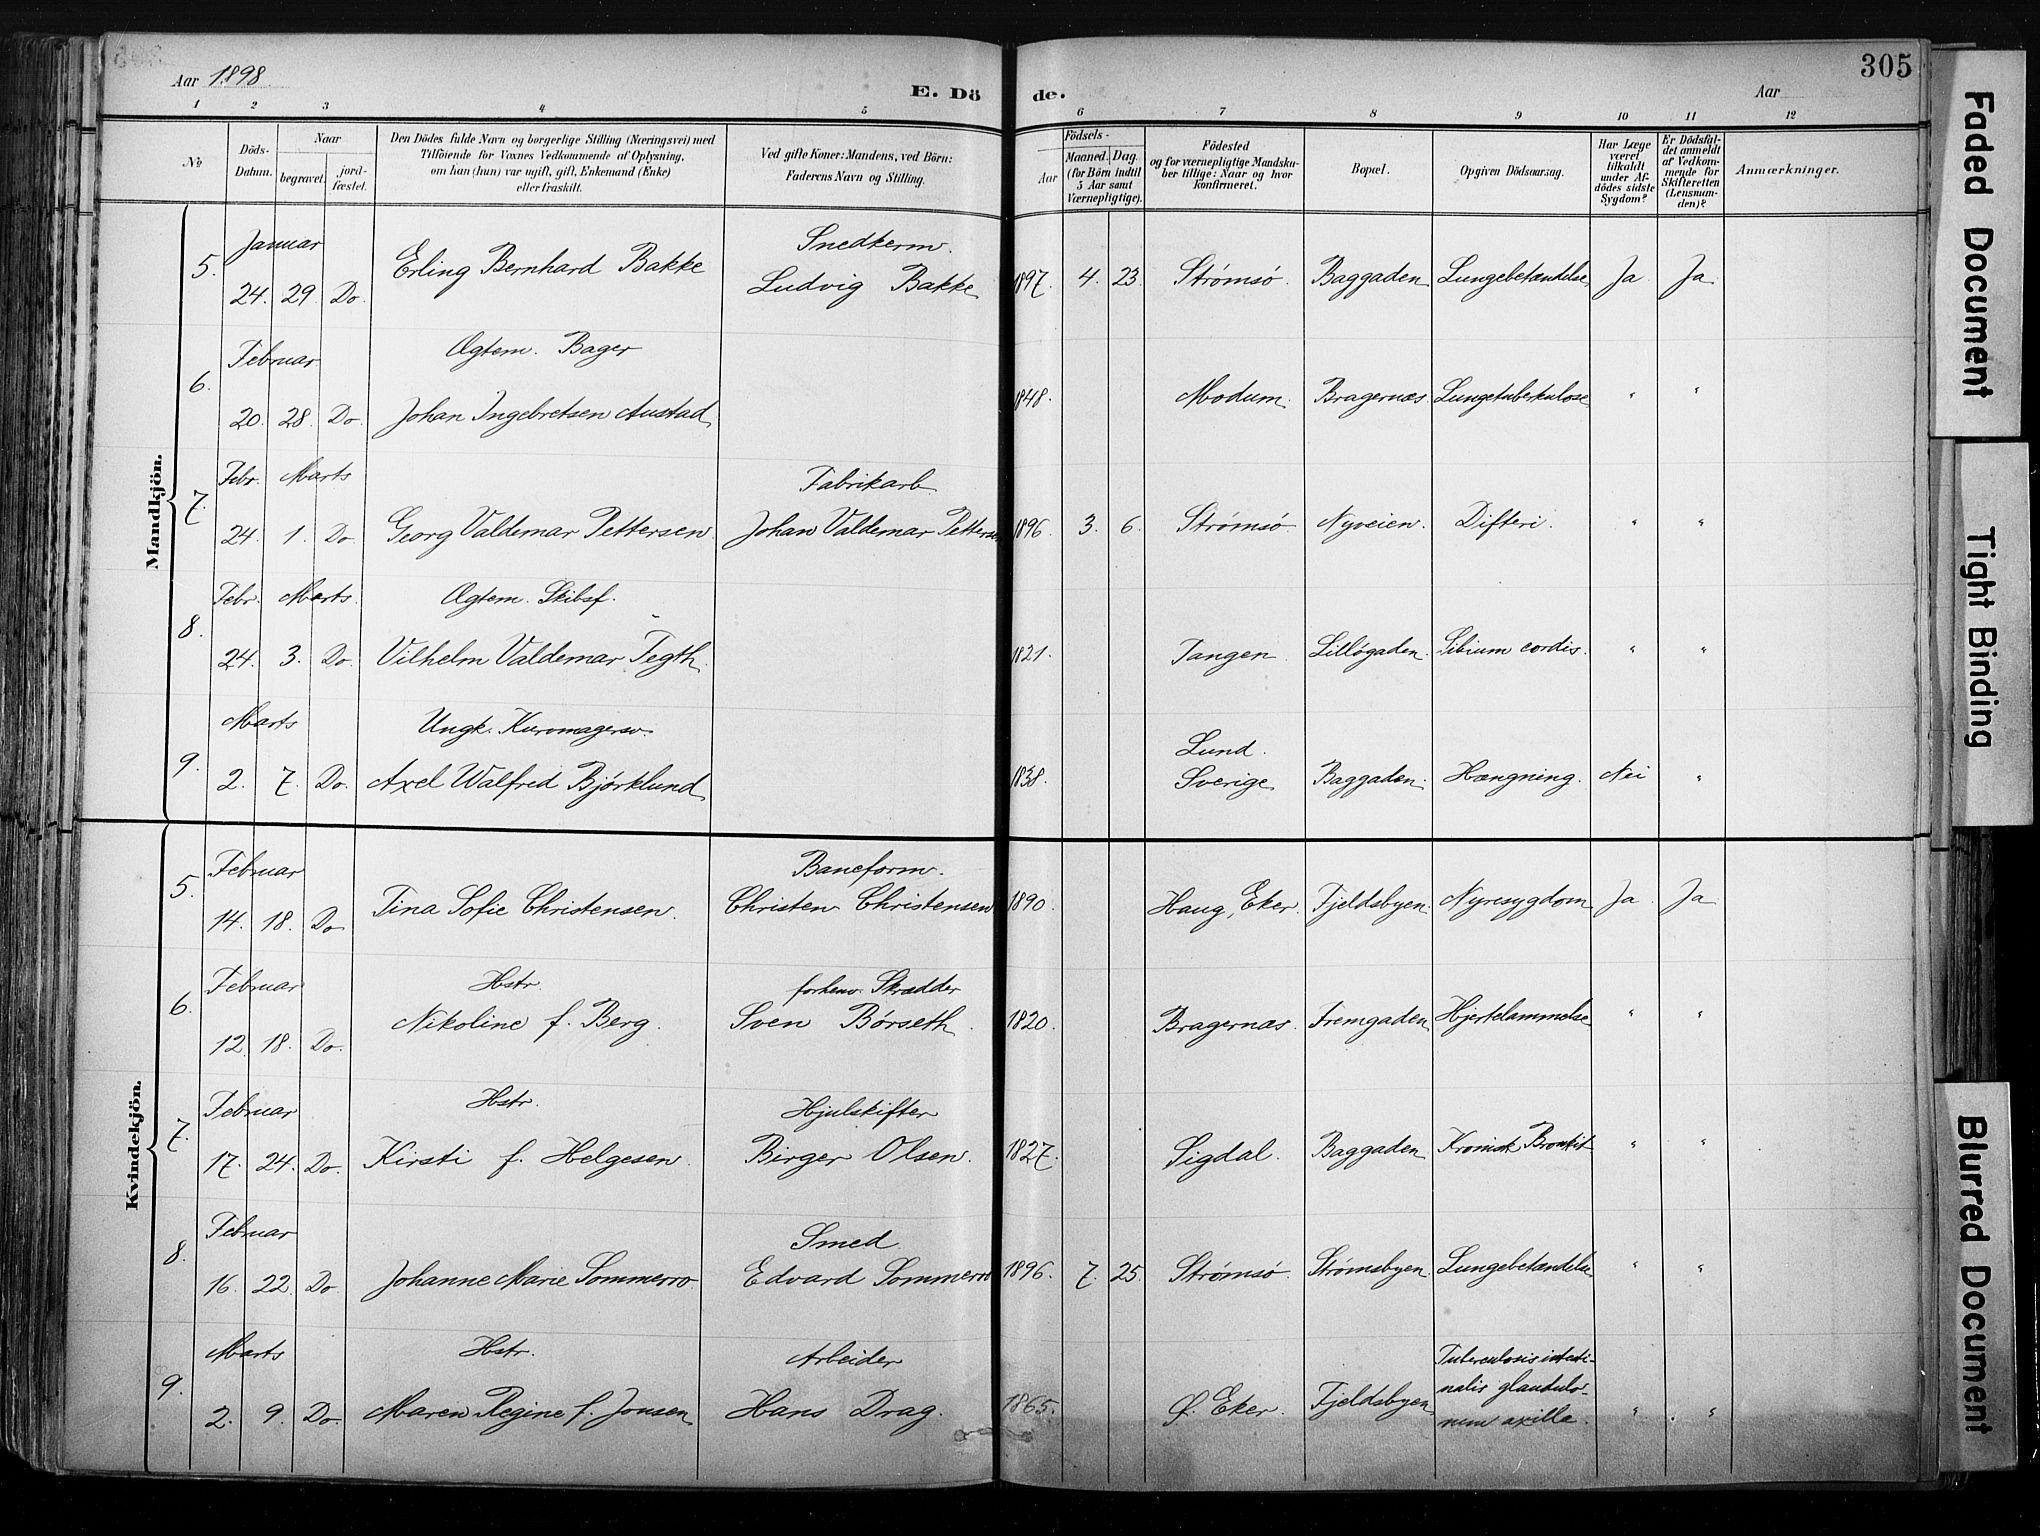 305
Aar 1898.
E. Dö
de.
Aar
1 2 3 4 5 6 7 8 9 10 11 12
No
Döds-Datum.
Naar
begravet.
jord-fæstet.
Den Dödes fulde Navn og borgerlige Stilling (Næringsvei) med
Tilföiende for Voxnes Vedkommende af Oplysning,
om han (hun) var ugift, gift, Enkemand (Enke)
eller fraskilt.
Ved gifte Koner: Mandens, ved Börn:
Faderens Navn og Stilling.
Födsels-
Aar
Maaned. Dag.
(for Börn indtil
5 Aar samt
Værnepligtige).
Födested
og for værnepligtige Mandsku-
ber tillige: Naar og hvor
konfirmeret.
Bopæl.
Opgiven Dödsaarsag.
Har Læge
været
tilkaldt
under Af-
dödes sidste
Sygdom?
Er Dödsfal-
det anmeldt
af Vedkom-
mende for
Skifteretten
(Lensman-
den)?
Anmærkninger.
Mandkjön.
Januar Snedkersv.
5. 24. 29. Do. Erling Bernhard Bakke Ludvig Bakke 1897. 4. 23. Strømsø. Baggaden Lungebetændelse Ja Ja
Februar Ægtem. Bager
6. 20. 28. Do. Johan Ingebretsen Austad 1848. Modum. Bragernæs. Lungetuberkulose " "
Febr. Marts Fabrikarb.
7. 24. 1. Do. Georg Valdemar Pettersen Johan Valdemar Petterse 1896. 3. 6. Strømsø Nyveien. Difteri. " "
Febr. Marts. Ægtem. Skibsf.
8. 24. 3. Do. Vilhelm Valdemar Tegth. 1821. Tangen Lilløgaden cordis. " "
Marts Ungk. Lund.
9. 2. 7. Do. Axel Walfred Bjørklund 1838. Sverige Baggaden. Hængning. Nei "
Kvindekjön.
Februar Baneform.
5. 14. 18. Do Tina Sofie Christensen. Christen Christensen 1890. Haug, Eker. Fjeldsbyen. Nyresygdom Ja Ja
Februar Hstr. forhenv. Skrædder
6. 12. 18. Do. Nikoline f. Berg. Sven Børseth. 1820. Bragernæs. Fremgaden Hjertelammelse " "
Februar Hstr. Hjulskifter
7. 17. 24. Do. Kirsti f. Helgesen. Birger Olsen. 1827. Sigdal. Baggaden Kronisk Bronkit " "
Februar Smed
8. 16. 22. Do. Johanne Marie Sommerro. Edvard Sommerro 1896. 7. 25. Strømsø. Strømsbyen. Lungebetændelse " "
Marts Hstr. Arbeider Tuberculosis intesti-
9. 2. 9. Do. Maren Regine f. Jonsen Hans Drag. 1865. Ø. Eker. Fjeldsbyen nalis glandulo- " "
rum axilla.
Faded Document
Tight Binding
Blurred Document